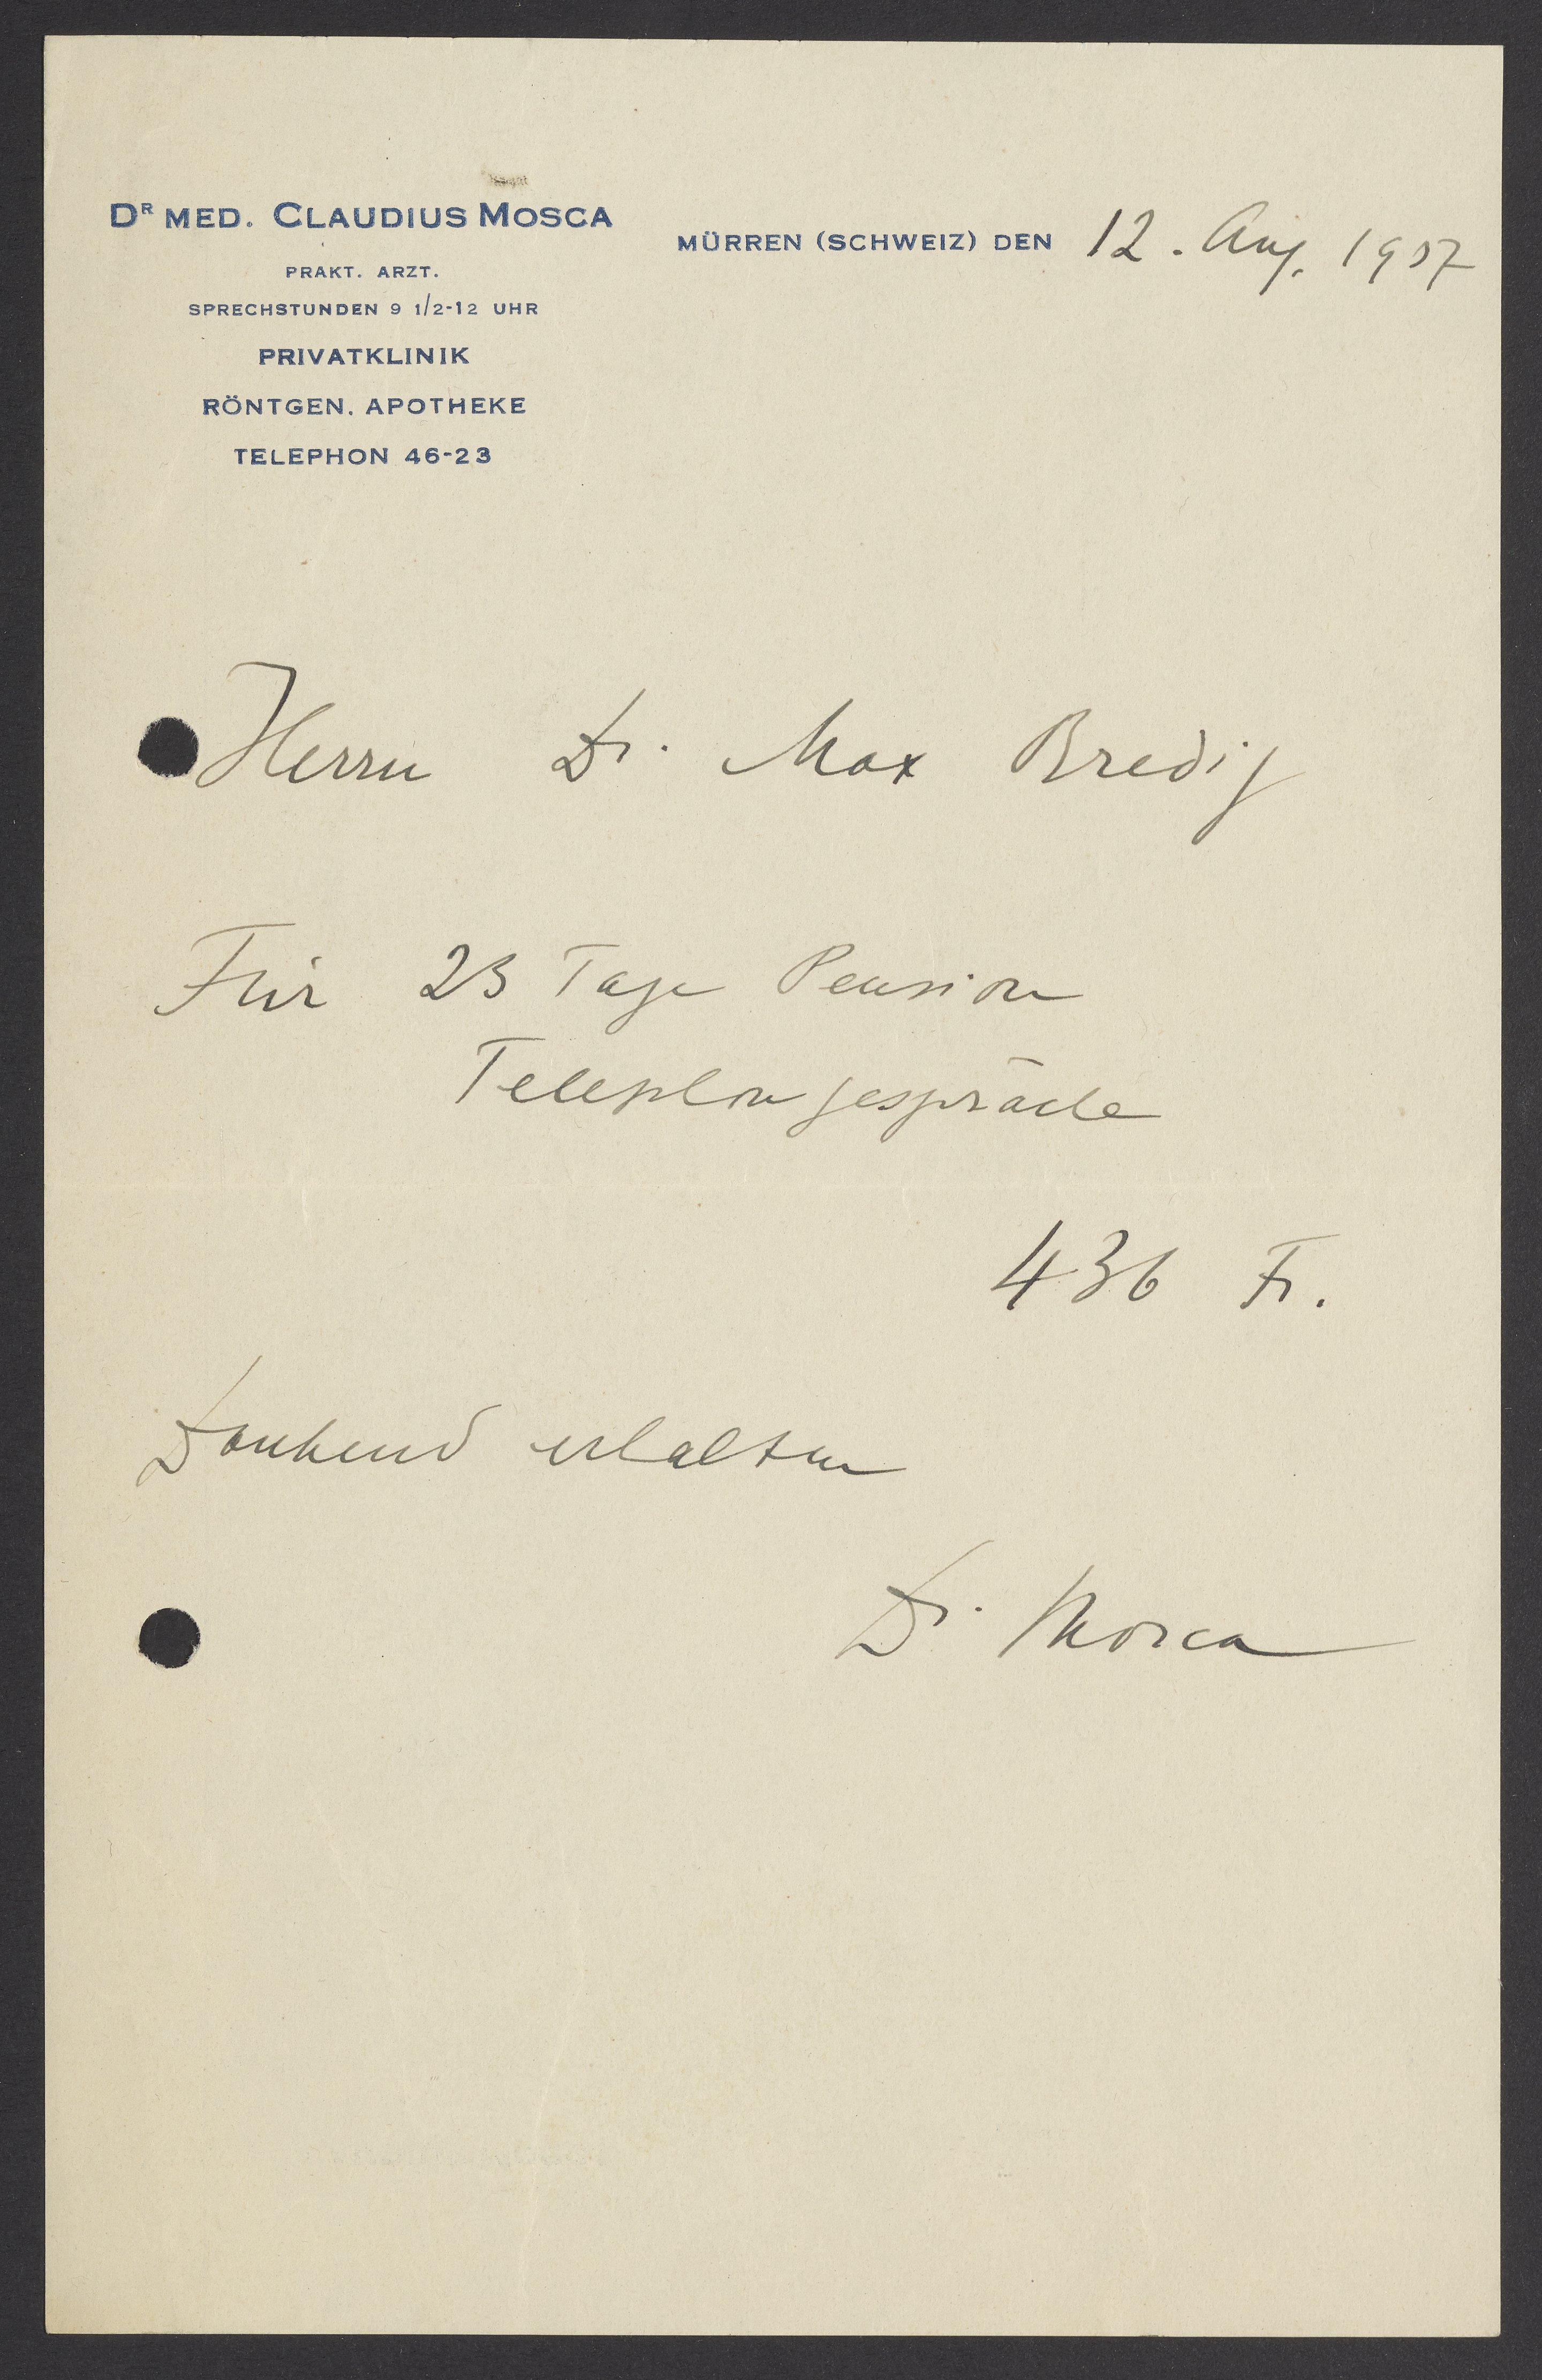 DR MED. CLAUDIUS MOSCA
PRAKT. ARZT.
SPRECHSTUNDEN 9 1/2-12 UHR
PRIVATKLINIK
RÖNTGEN. APOTHEKE
TELEPHON 46-23
MÜRREN (SCHWEIZ) DEN 12. Aug. 1937
Herrn Dr. Max Bredig
Für 23 Tage Pension
Telephongespräche
436 Fr.
Dankend erhalten
Dr. Mosca